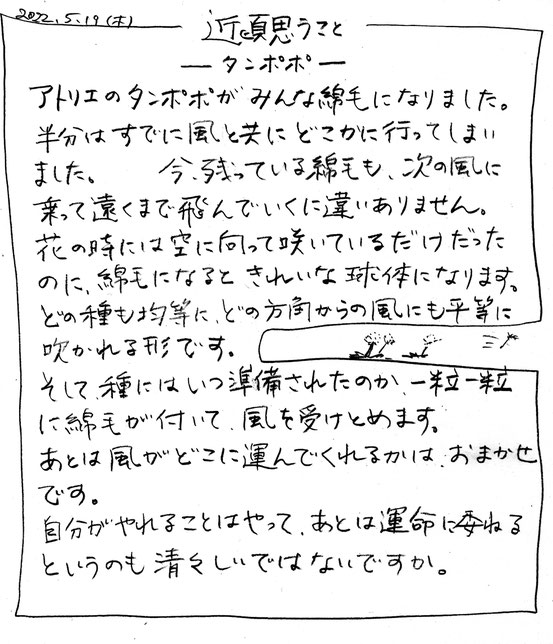 2022.5.19(木)
近頃思うこと
― タンポポ ―
アトリエのタンポポがみんな綿毛になりました。
半分はすでに風と共にどこかに行ってしまい
ました。 今、残っている綿毛も、次の風に
乗って遠くまで飛んでいくに違いありません。
花の時には空に向って咲いているだけだった
のに、綿毛になるときれいな球体になります。
どの種も均等に、どの方角からの風にも平等に
吹かれる形です。
そして、種にはいつ準備されたのか、一粒一粒
に綿毛が付いて、風を受けとめます。
あとは風がどこに運んでくれるかは、おまかせ
です。
自分がやれることはやって、あとは運命に委ねる
というのも清々しいではないですか。